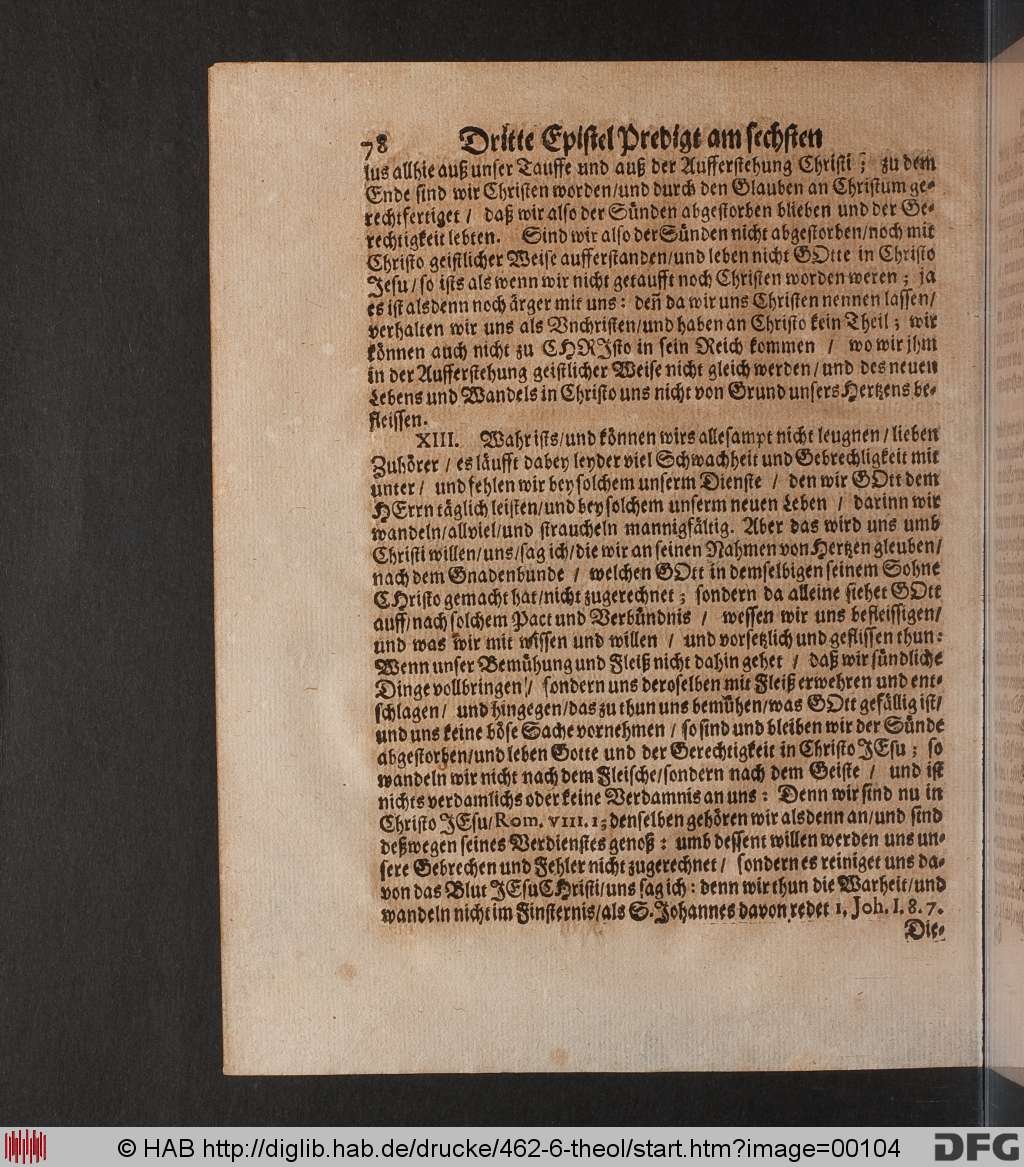 78 Dritte Epistel Predigt am sechsten
ius allhie auß unser Tauffe und auß der Aufferstehung Christi; zu dem
Ende sind wir Christen worden/und durch den Glauben an Christum ge-
rechtfertiget / daß wir also der Sünden abgestorben blieben und der Ge-
rechtigkeit lebten. Sind wir also der Sünden nicht abgestorben/noch mit
Christo geistlicher Weise aufferstanden/und leben nicht GOtte in Christo
Jesu/so ists als wenn wir nicht getaufft noch Christen worden weren; ja
es ist alsdenn noch ärger mit uns: deñ da wir uns Christen nennen lassen/
verhalten wir uns als Vnchristen/und haben an Christo kein Theil; wir
können auch nicht zu CHRJsto in sein Reich kommen / wo wir jhm
in der Aufferstehung geistlicher Weise nicht gleich werden/und des neuen
Lebens und Wandels in Christo uns nicht von Grund unsers Hertzens be-
fleissen.
XIII. Wahr ists/und können wirs allesampt nicht leugnen/lieben
Zuhörer / es läufft dabey leyder viel Schwachheit und Gebrechligkeit mit
unter/ und fehlen wir bey solchem unserm Dienste / den wir GOtt dem
HErrn täglich leisten/und bey solchem unserm neuen Leben / darinn wir
wandeln/allviel/und straucheln mannigfältig. Aber das wird uns umb
Christi willen/uns/sag ich/die wir an seinen Nahmen von Hertzen gleuben/
nach dem Gnadenbunde / welchen GOtt in demselbigen seinem Sohne
CHristo gemacht hat/nicht zugerechnet; sondern da alleine siehet GOtt
auff/nach solchem Pact und Verbündnis / wessen wir uns befleissigen/
und was wir mit wissen und willen / und vorsetzlich und geflissen thun:
Wenn unser Bemühung und Fleiß nicht dahin gehet / daß wir sündliche
Dinge vollbringen/ sondern uns deroselben mit Fleiß erwehren und ent-
schlagen/ und hingegen/das zu thun uns bemühen/was GOtt gefällig ist/
und uns keine böse Sache vornehmen / so sind und bleiben wir der Sünde
abgestorben/und leben Gotte und der Gerechtigkeit in Christo JEsu; so
wandeln wir nicht nach dem Fleische/sondern nach dem Geiste / und ist
nichts verdamlichs oder keine Verdamnis an uns: Denn wir sind nu in
Christo JEsu/Rom. VIII. 1; denselben gehören wir alsdenn an/und sind
deßwegen seines Verdienstes genoß: umb dessent willen werden uns un-
sere Gebrechen und Fehler nicht zugerechnet/ sondern es reiniget uns da-
von das Blut JEsu CHristi/uns sag ich: denn wir thun die Warheit/und
wandeln nicht im Finsternis/als S. Johannes davon redet 1. Joh. I. 8. 7.
Die-
© HAB http://diglib.hab.de/drucke/462-6-theol/start.htm?image=00104
DFG